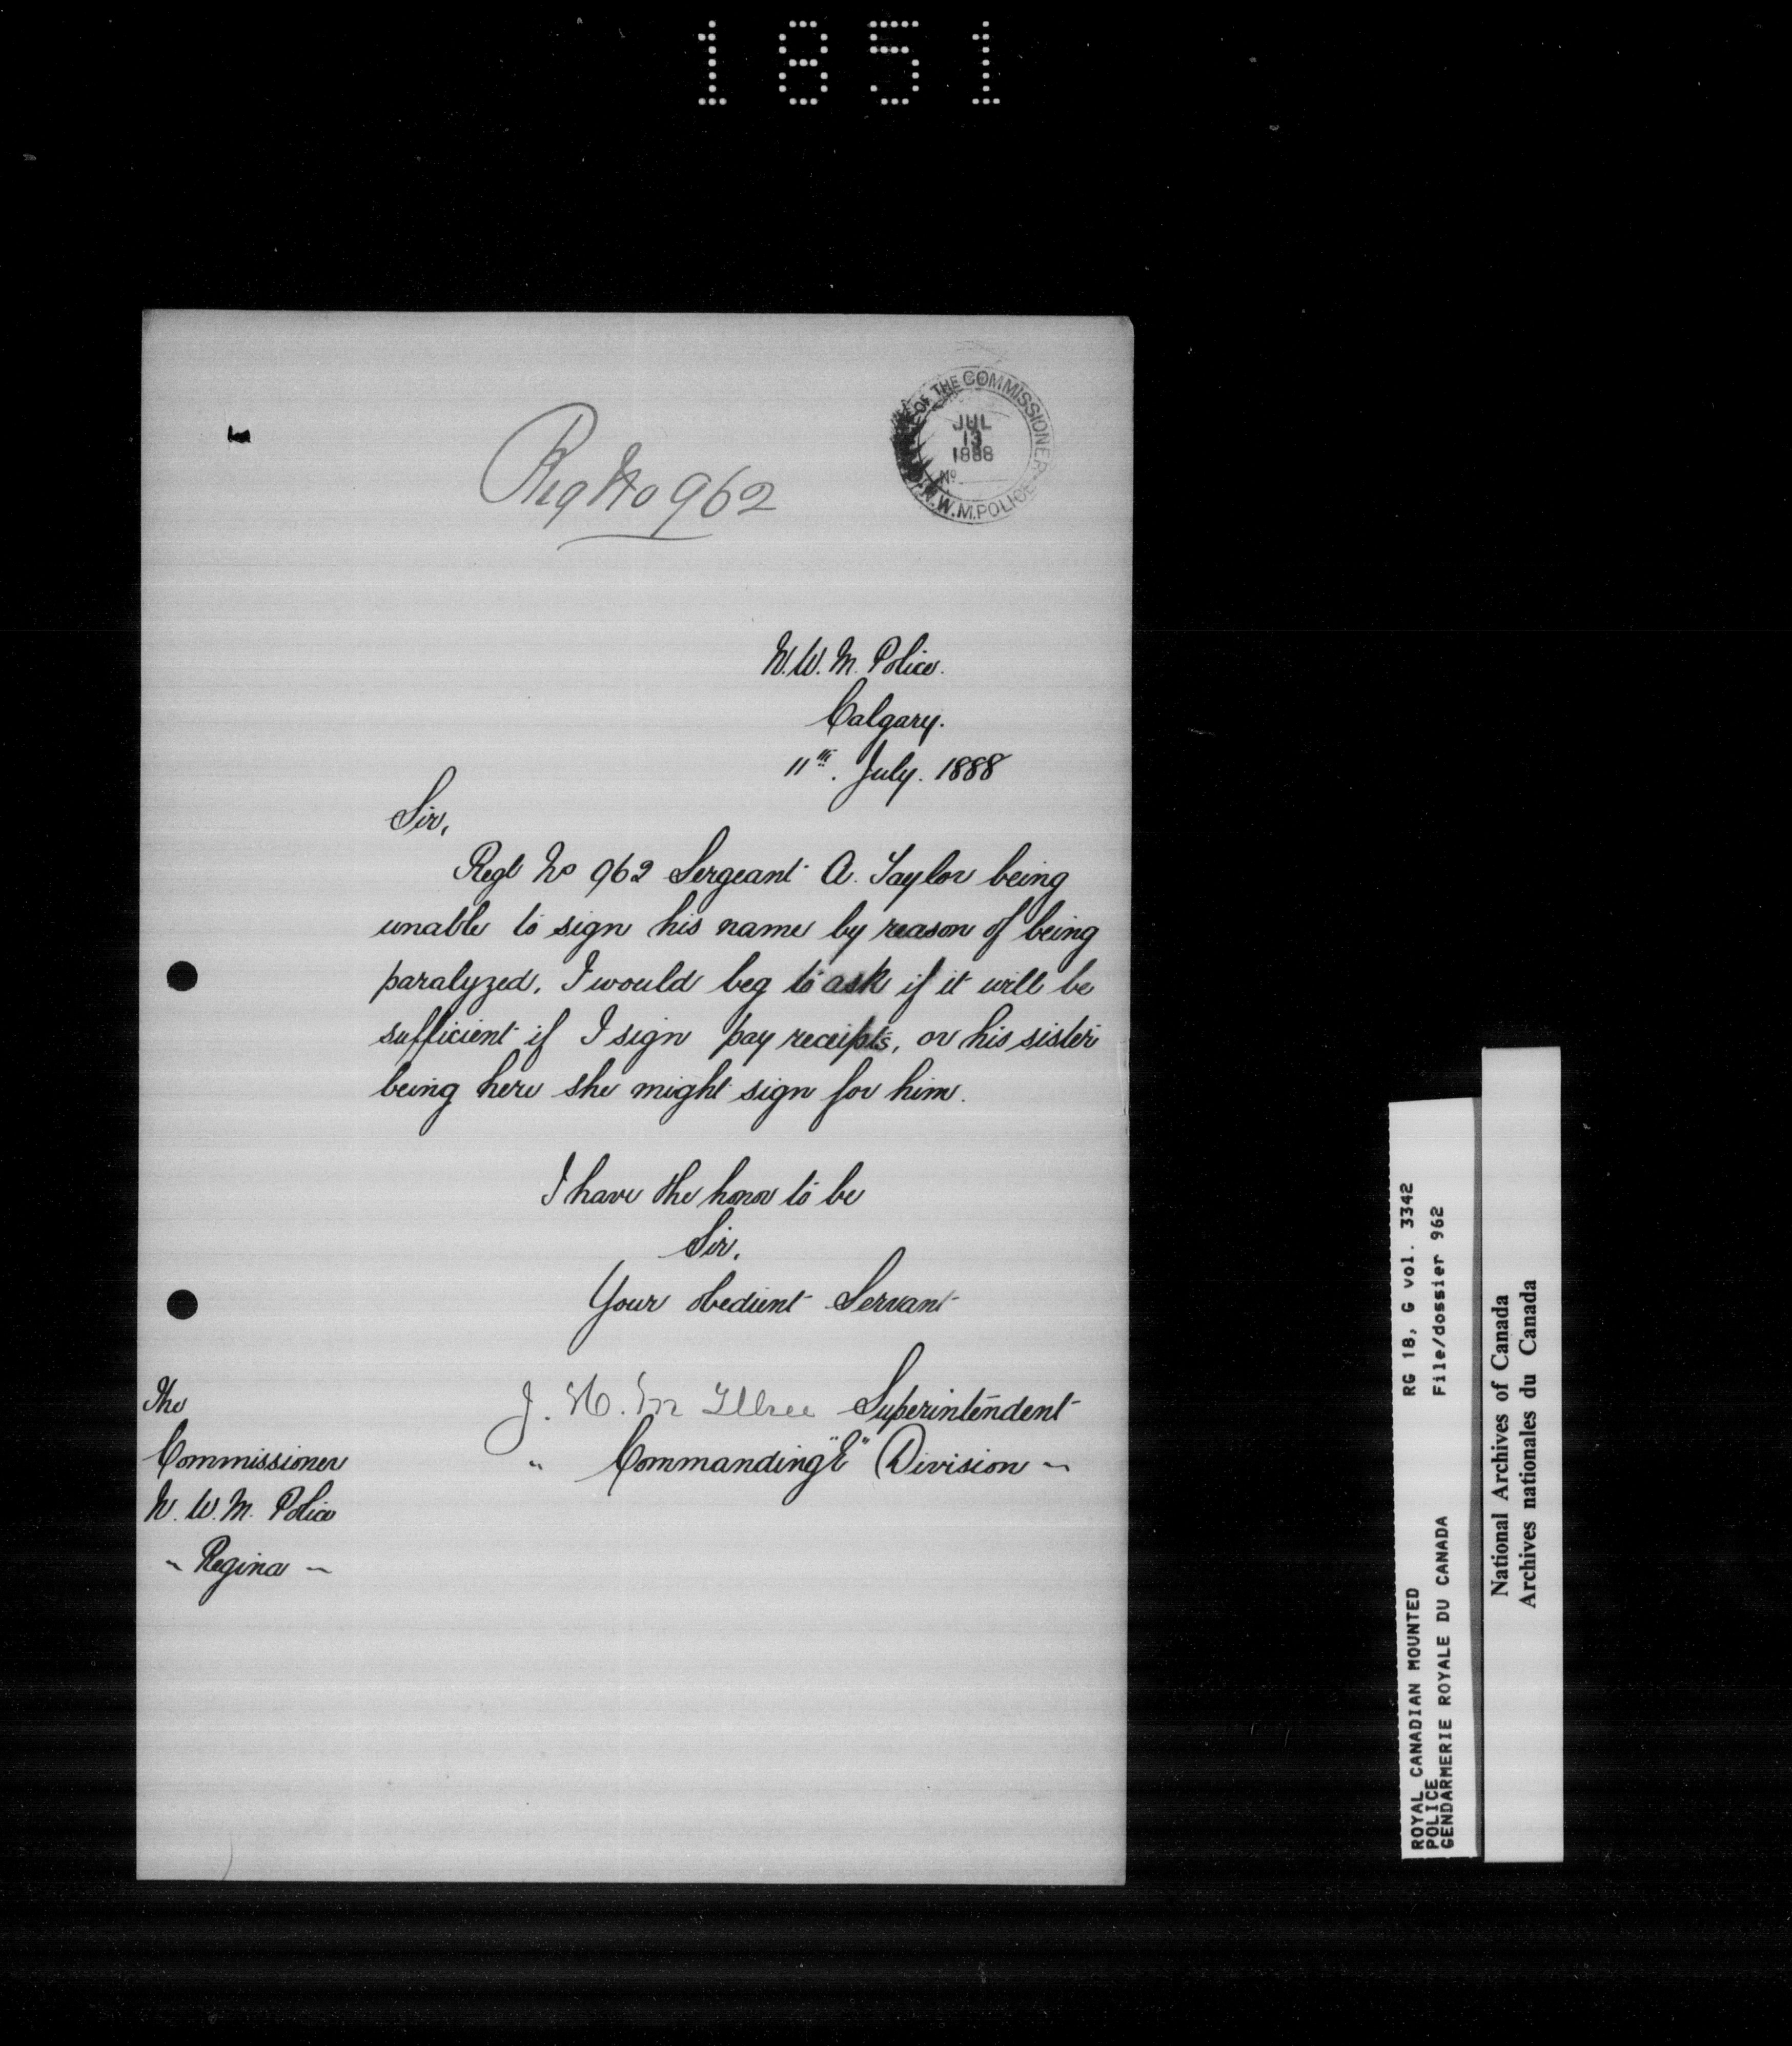 1851
OFFICE OF THE COMMISSIONER
JUL
13
1888
No
N.W.M. POLICE
Reg No 962
N.W.M. Police.
Calgary.
11th. July. 1888
Sir,
Regl No 962 Sergeant A. Taylor being
unable to sign his name by reason of being
paralyzed, I would beg to ask if it will be
sufficient if I sign pay receipts, or his sister
being here she might sign for him.
I have the honor to be
Sir,
Your obedient Servant
J. H. McIllree Superintendent
" Commanding "E" Division ~
The
Commissioner
N.W.M. Police
~ Regina ~
ROYAL CANADIAN MOUNTED
POLICE
GENDARMERIE ROYALE DU CANADA
RG 18, G vol. 3342
File/dossier 962
National Archives of Canada
Archives nationales du Canada